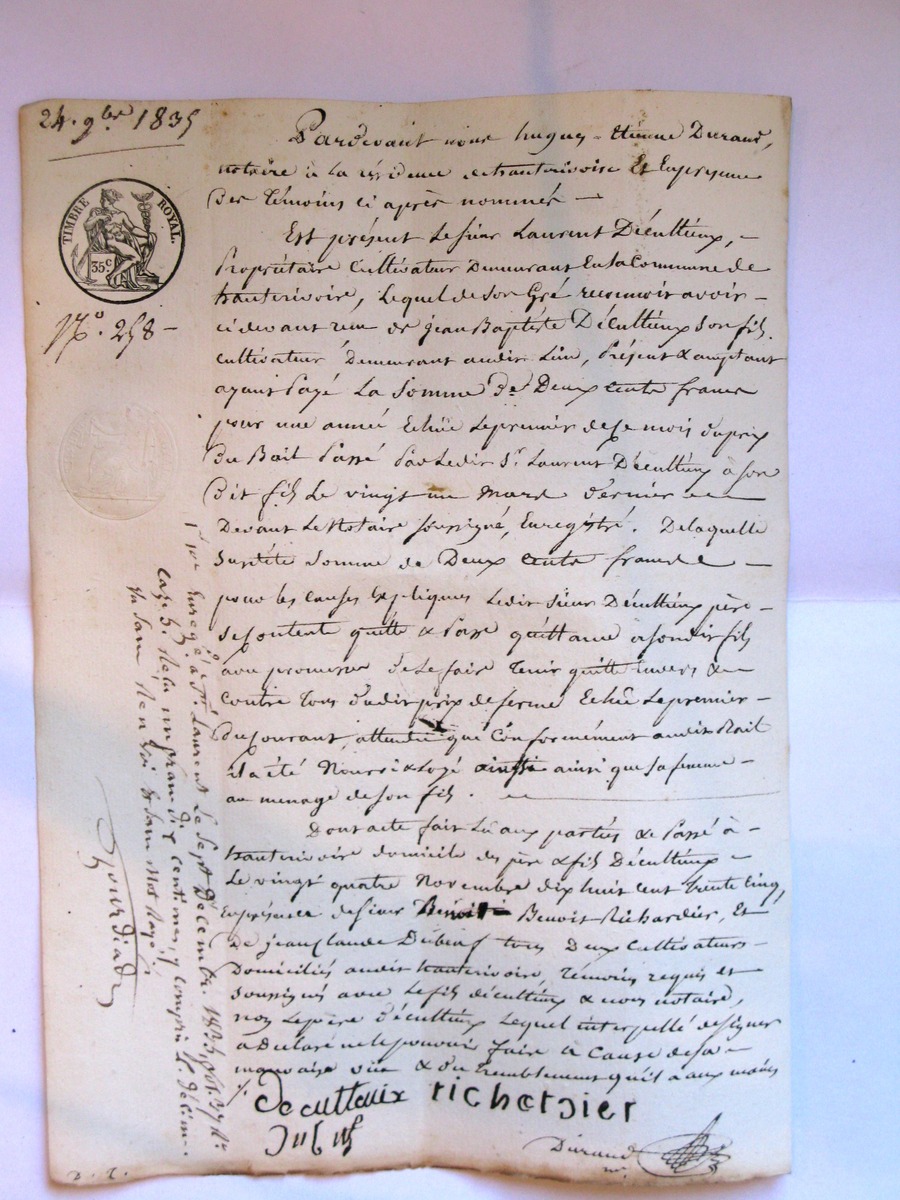 24. 9bre 1835
TIMBRE ROYAL.
35c
No. 258 -
Pardevant nous hugues-Etienne Durand,
notaire à la résidence de hauterivoire Et En presence
Des témoins ci après nommés -
Est présent Le sieur Laurent Décultieux, -
Propriétaire Cultivateur Demeurant En la Commune de
hauterivoire, Lequel de son Gré reconnoit avoir -
ci devant reçu de jean Baptiste Décultieux son fils
cultivateur Demeurant audit Lieu, Présent & acceptant
ayant Payé La Somme De Deux cents francs
pour une année Echüe Le premier de ce mois du prix
Du Bail Passé Par Ledit Sr. Laurent Décultieux à son
Dit fils Le vingt un mars Dernier
Devant Le Notaire soussigné, Enregistré. De laquelle
Susdite Somme de Deux cents francs
pour les causes Expliquées Ledit Sieur Décultieux père -
se contente quitte & Passe quittance à son dit fils
avec promesse De le faire tenir quitte Envers &
Contre tous Dudit prix de ferme Echüe Le premier -
Du Courant, attendu que Conformément audit Bail
il a été Nourri & Logé ainsi que sa femme -
au menage de son fils.
Dont acte fait Lu aux parties & Passé à -
hauterivoire domicile des père & fils Décultieux -
Le vingt quatre Novembre dix huit cent trente cinq,
En présence de sieur Benoit Richardier, Et
De jean Claude Dubœuf tous Deux Cultivateurs -
Domiciliés audit hauterivoire, témoins requis et
Soussignés avec Le fils décultieux & nous notaire,
non Le père Décultieux Lequel interpellé de signer
a Déclaré ne le pouvoir faire à Cause de sa -
mauvaise vüe & du tremblement qu'il a aux mains
decultieux richardier
Durand
Enregé. à St. Laurent Le Sept Décembre 1835,
case 5. Reçu un franc dix centimes, y compris le Décime